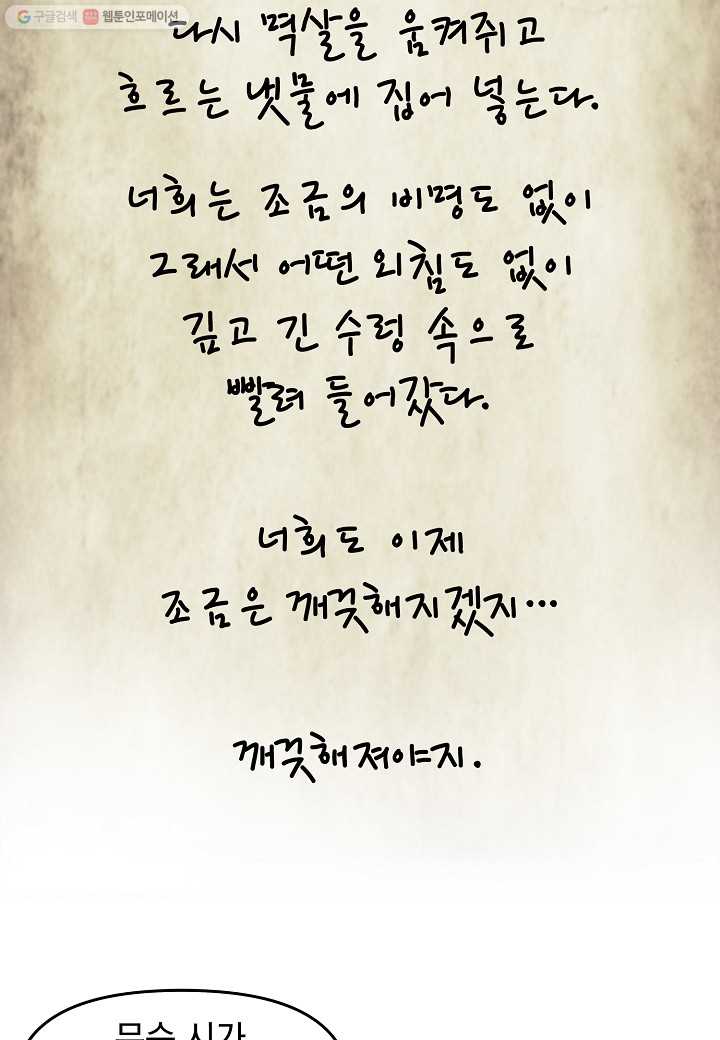 구글검색 웹툰인포메이션
다시 멱살을 움켜쥐고
흐르는 냇물에 집어 넣는다.
너희는 조금의 비명도 없이
그래서 어떤 외침도 없이
깊고 긴 수렁 속으로
빨려 들어갔다.
너희도 이제
조금은 깨끗해지겠지…
깨끗해져야지.